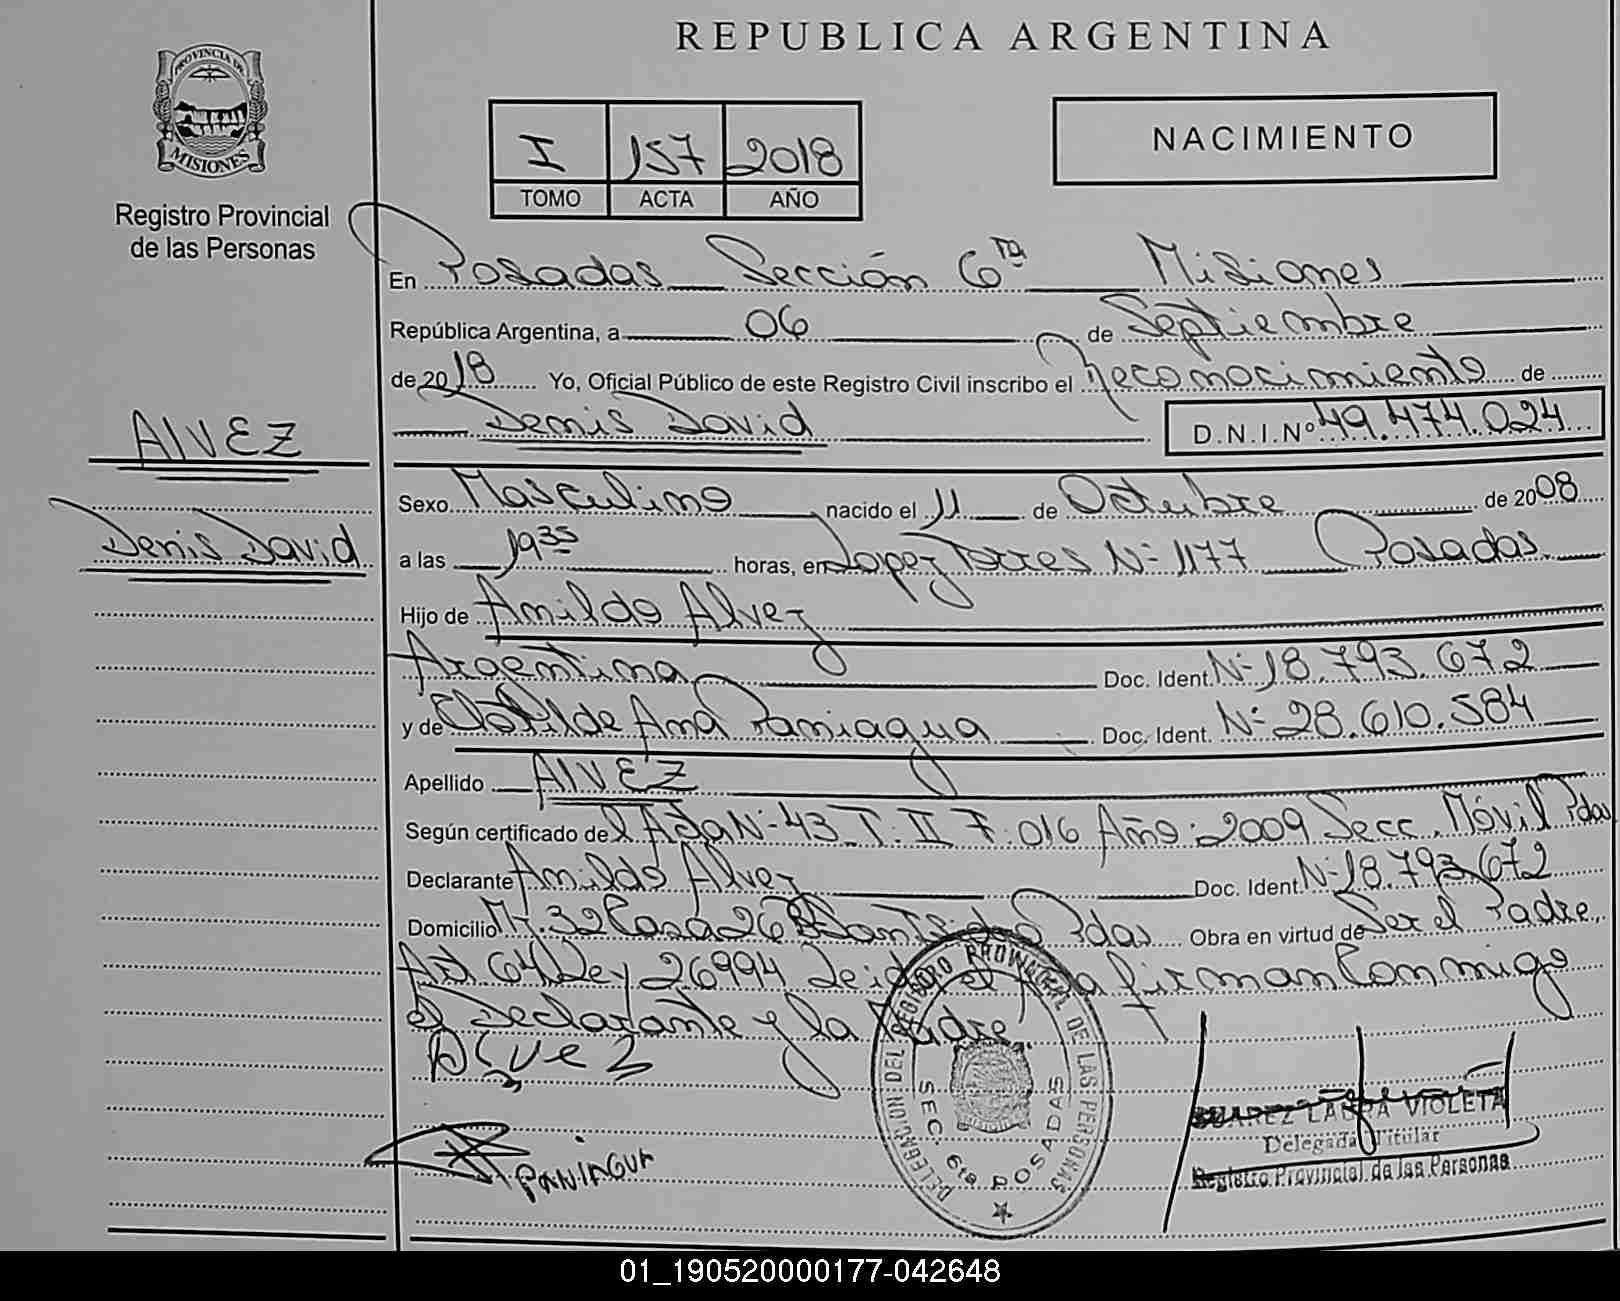 REPUBLICA ARGENTINA
PROVINCIA DE
MISIONES
Registro Provincial
de las Personas
I 157 2018
TOMO ACTA AÑO
NACIMIENTO
En Posadas Sección 6ta Misiones
República Argentina, a 06 de Septiembre
de 2018 Yo, Oficial Público de este Registro Civil inscribo el Reconocimiento de
Denis David D.N.I.Nº 49.474.024
ALVEZ
Denis David
Sexo Masculino nacido el 11 de Octubre de 2008
a las 1935 horas, en Lopez Torres Nº 1177 Posadas
Hijo de Amildo Alvez
Argentina Doc. Ident. Nº 18.793.672
y de Clotilde Ana Paniagua Doc. Ident. Nº 28.610.584
Apellido ALVEZ
Según certificado del Acta Nº 43 T. II F. 016 Año 2009 Secc. Móvil Pdas
Declarante Amildo Alvez Doc. Ident. Nº 18.793.672
Domicilio Mz. 32 Casa 26 Bº San Isidro Pdas Obra en virtud de Ser el Padre
Art. 64 Ley 26994 Leida el Acta firman Conmigo
el Declarante y la Madre
ALVEZ
PANIAGUA
DELEGACION DEL REGISTRO PROVINCIAL DE LAS PERSONAS
SEC. 6ta POSADAS
SUAREZ LAURA VIOLETA
Delegada Titular
Registro Provincial de las Personas
01_190520000177-042648